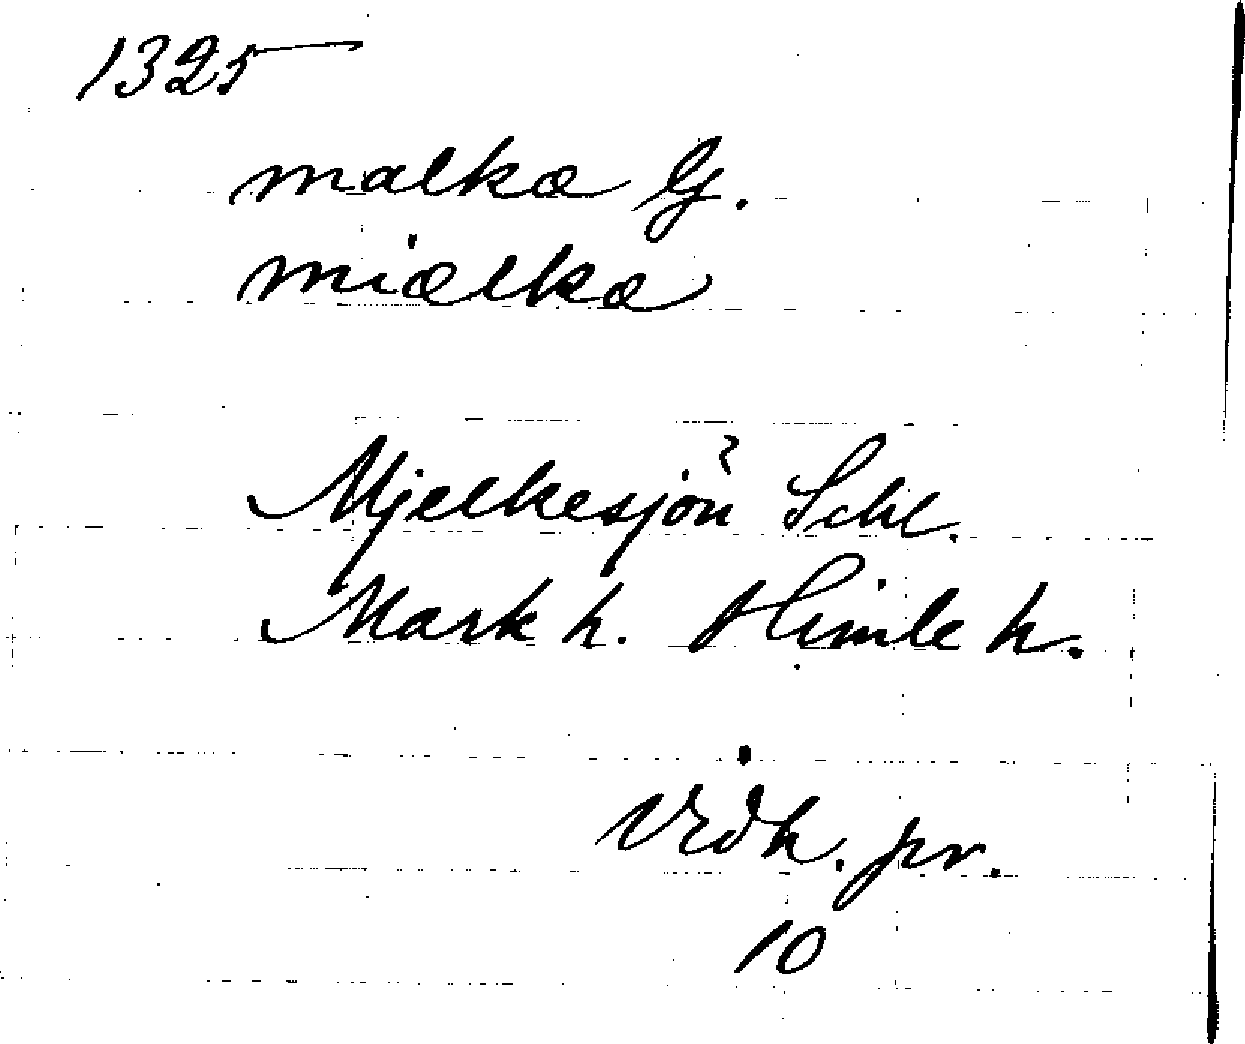 1325
malka G.
miælka
Mjelkesjön? Schl.
Mark h. Himle h.
Vidh. pr.
10